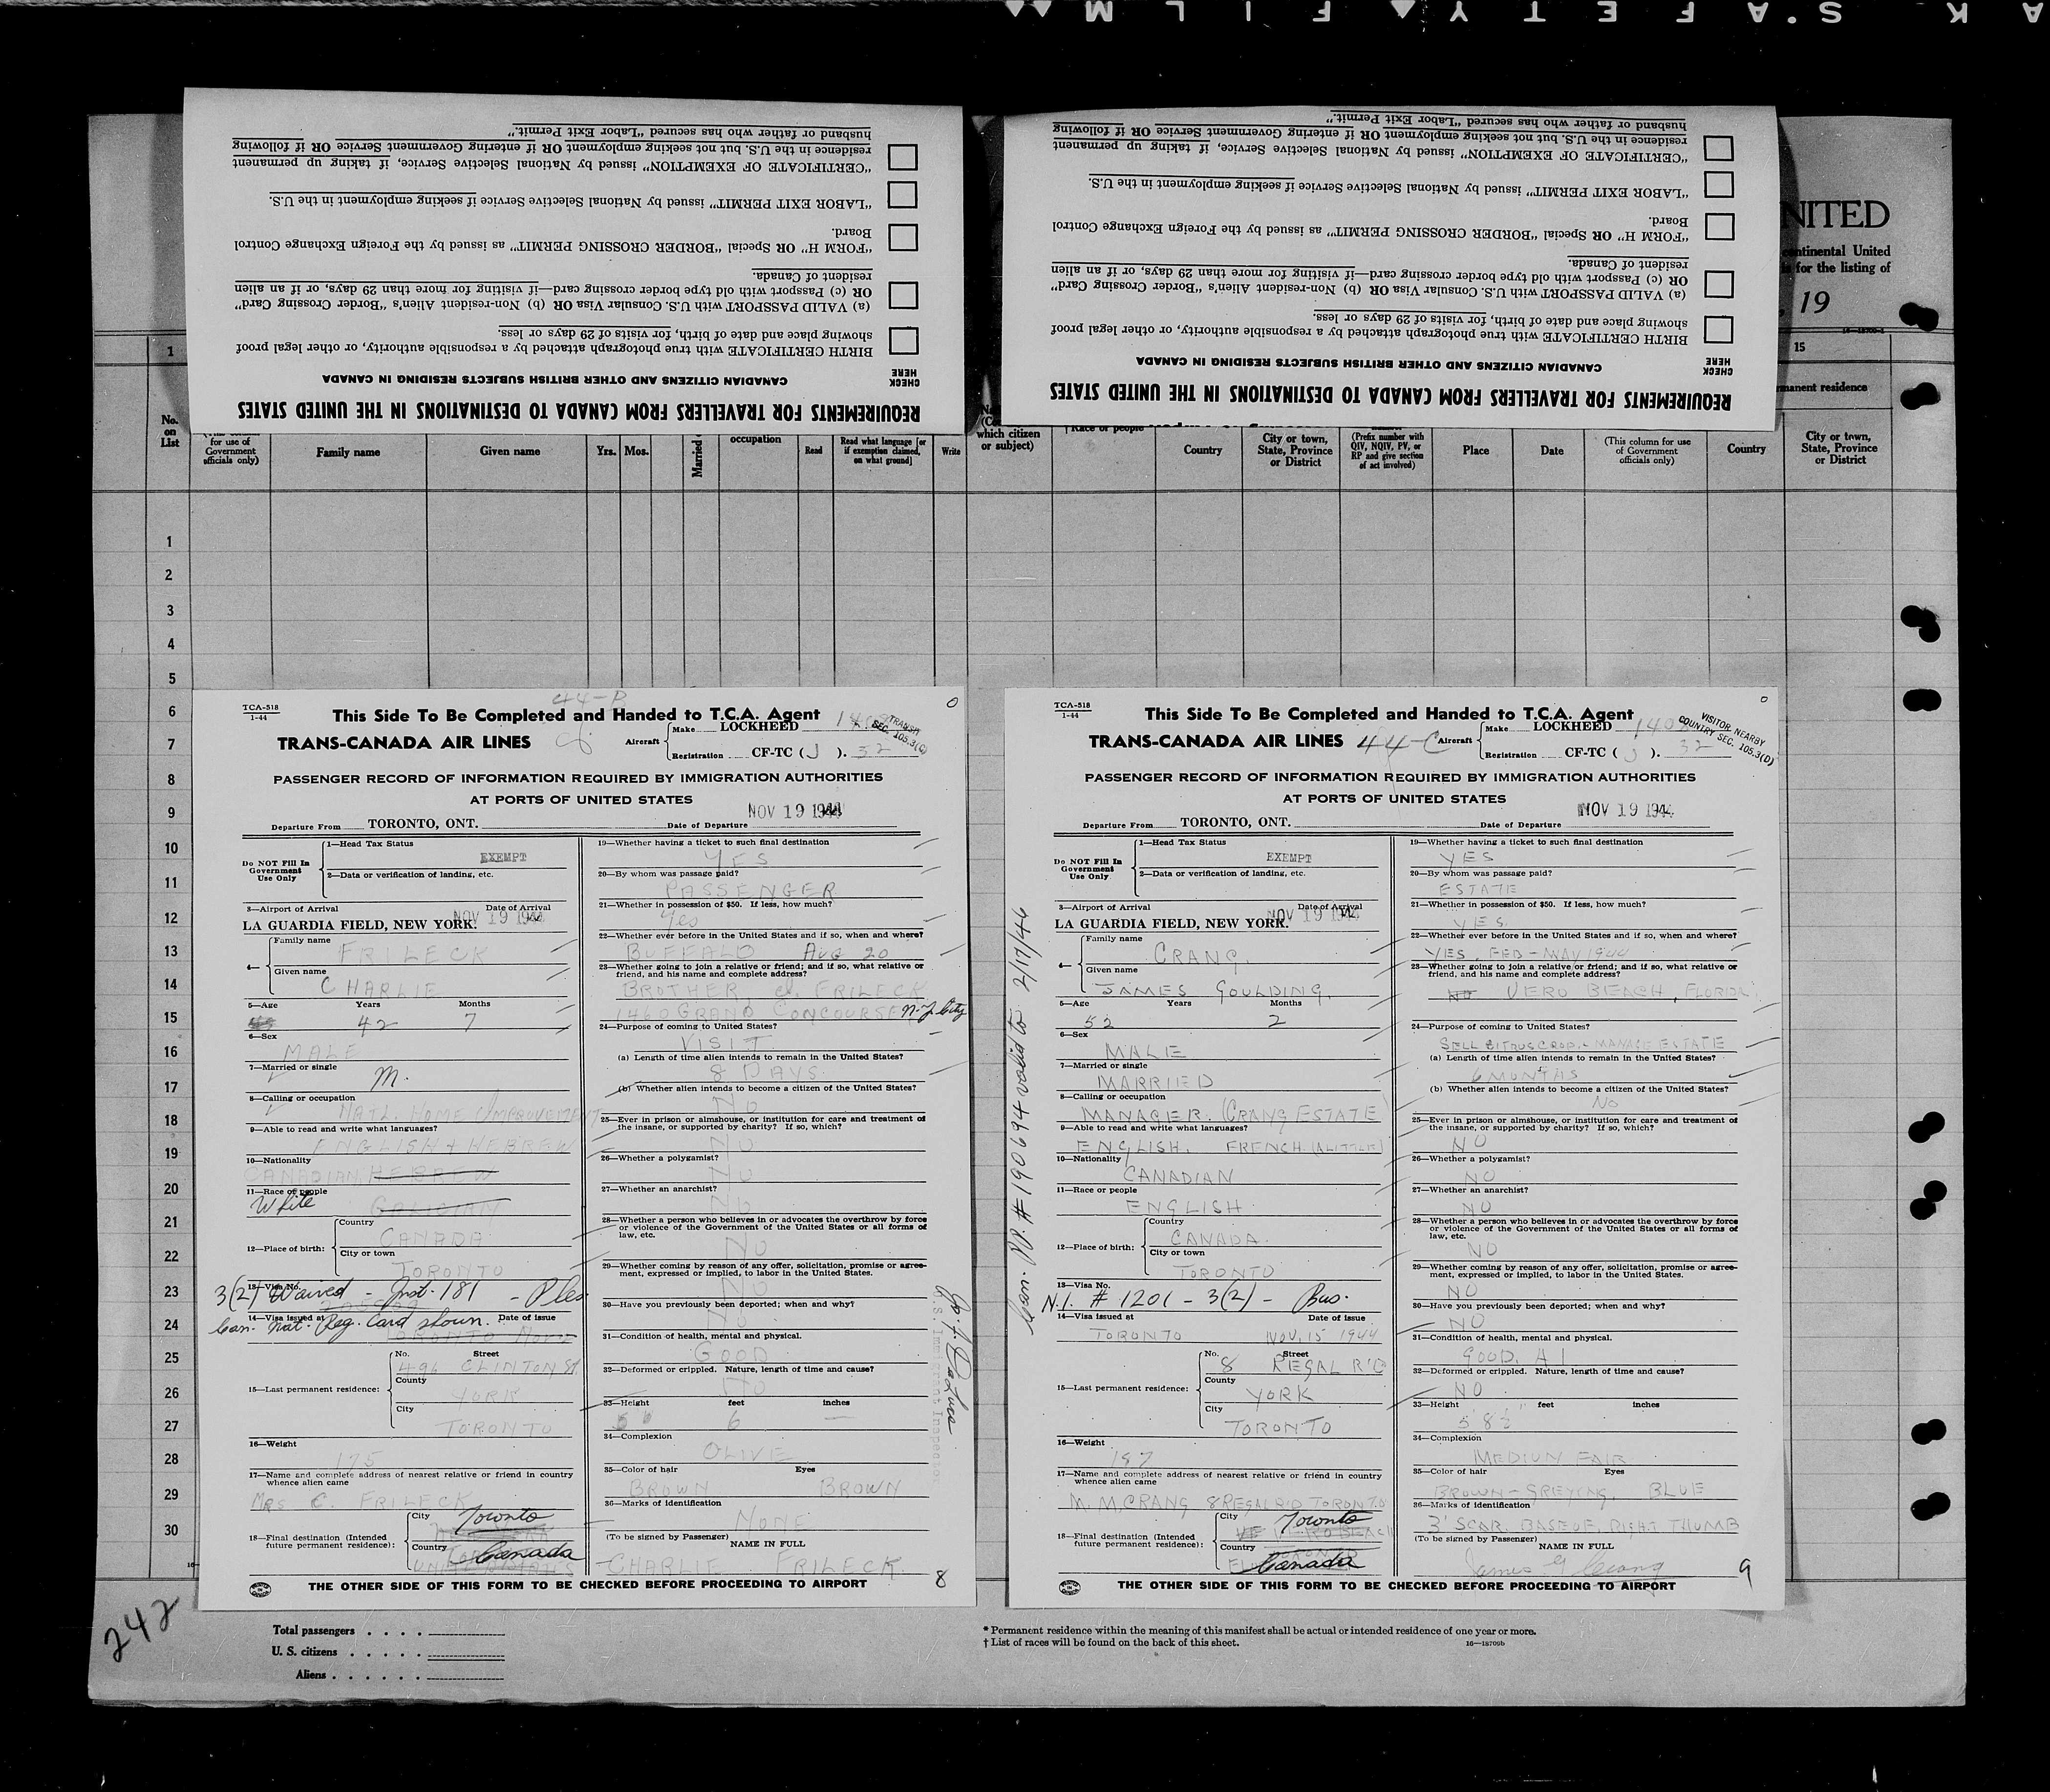 SAFETY FILM
REQUIREMENTS FOR TRAVELLERS FROM CANADA TO DESTINATIONS IN THE UNITED STATES
CHECK HERE
CANADIAN CITIZENS AND OTHER BRITISH SUBJECTS RESIDING IN CANADA
BIRTH CERTIFICATE with true photograph attached by a responsible authority, or other legal proof
showing place and date of birth, for visits of 29 days or less.
(a) VALID PASSPORT with U.S. Consular Visa OR (b) Non-resident Alien's "Border Crossing Card"
OR (c) Passport with old type border crossing card—if visiting for more than 29 days, or if an alien
resident of Canada.
"FORM H" OR Special "BORDER CROSSING PERMIT" as issued by the Foreign Exchange Control
Board.
"LABOR EXIT PERMIT" issued by National Selective Service if seeking employment in the U.S.
"CERTIFICATE OF EXEMPTION" issued by National Selective Service, if taking up permanent
residence in the U.S. but not seeking employment OR if entering Government Service OR if following
husband or father who has secured "Labor Exit Permit."
REQUIREMENTS FOR TRAVELLERS FROM CANADA TO DESTINATIONS IN THE UNITED STATES
CHECK HERE
CANADIAN CITIZENS AND OTHER BRITISH SUBJECTS RESIDING IN CANADA
BIRTH CERTIFICATE with true photograph attached by a responsible authority, or other legal proof
showing place and date of birth, for visits of 29 days or less.
(a) VALID PASSPORT with U.S. Consular Visa OR (b) Non-resident Alien's "Border Crossing Card"
OR (c) Passport with old type border crossing card—if visiting for more than 29 days, or if an alien
resident of Canada.
"FORM H" OR Special "BORDER CROSSING PERMIT" as issued by the Foreign Exchange Control
Board.
"LABOR EXIT PERMIT" issued by National Selective Service if seeking employment in the U.S.
"CERTIFICATE OF EXEMPTION" issued by National Selective Service, if taking up permanent
residence in the U.S. but not seeking employment OR if entering Government Service OR if following
husband or father who has secured "Labor Exit Permit."
NITED
continental United
for the listing of
, 19
1
15
permanent residence
No. on List
for use of Government officials only)
Family name
Given name
Yrs. Mos.
Married
occupation
Read
Read what language [or if exemption claimed, on what ground]
Write
which citizen or subject)
† Race or people
Country
City or town, State, Province or District
(Prefix number with QIV, NQIV, PV, or RP and give section of act involved)
Place
Date
(This column for use of Government officials only)
Country
City or town, State, Province or District
1
2
3
4
5
6
7
8
9
10
11
12
13
14
15
16
17
18
19
20
21
22
23
24
25
26
27
28
29
30
44-B
TCA-518
1-44
This Side To Be Completed and Handed to T.C.A. Agent
TRANS-CANADA AIR LINES
Aircraft
Make LOCKHEED
Registration CF-TC ( J ). 32
TRANSIT
SEC. 105.3(C)
PASSENGER RECORD OF INFORMATION REQUIRED BY IMMIGRATION AUTHORITIES
AT PORTS OF UNITED STATES
NOV 19 1944
Departure From TORONTO, ONT. Date of Departure
Do NOT Fill In Government Use Only
1—Head Tax Status
EXEMPT
2—Data or verification of landing, etc.
3—Airport of Arrival Date of Arrival
LA GUARDIA FIELD, NEW YORK. NOV 19 1944
4— Family name
FRILECK
Given name
CHARLIE
5—Age Years Months
42 7
6—Sex
MALE
7—Married or single
M.
8—Calling or occupation
NATL. HOME IMPROVEMENT
9—Able to read and write what languages?
ENGLISH & HEBREW
10—Nationality
CANADIAN HEBREW
11—Race of people
White
12—Place of birth: Country
CANADA
City or town
TORONTO
13—Visa No.
3(2) Waived - Ind. 181 - Ples
14—Visa issued at Date of issue
Can. Nat. Reg. Card shown.
15—Last permanent residence: No. Street
496 CLINTON ST.
County
YORK
City
TORONTO
16—Weight
175
17—Name and complete address of nearest relative or friend in country
whence alien came
MRS C. FRILECK
18—Final destination (Intended future permanent residence):
City Toronto
Country Canada
19—Whether having a ticket to such final destination
YES
20—By whom was passage paid?
PASSENGER
21—Whether in possession of $50. If less, how much?
Yes
22—Whether ever before in the United States and if so, when and where?
BUFFALO AUG 20
23—Whether going to join a relative or friend; and if so, what relative or
friend, and his name and complete address?
BROTHER FRILECK
1460 GRAND CONCOURSE N.Y. City
24—Purpose of coming to United States?
VISIT
(a) Length of time alien intends to remain in the United States?
8 DAYS
(b) Whether alien intends to become a citizen of the United States?
NO
25—Ever in prison or almshouse, or institution for care and treatment of
the insane, or supported by charity? If so, which?
NO
26—Whether a polygamist?
NO
27—Whether an anarchist?
NO
28—Whether a person who believes in or advocates the overthrow by force
or violence of the Government of the United States or all forms of
law, etc.
NO
29—Whether coming by reason of any offer, solicitation, promise or agree-
ment, expressed or implied, to labor in the United States.
NO
30—Have you previously been deported; when and why?
NO
31—Condition of health, mental and physical.
GOOD
32—Deformed or crippled. Nature, length of time and cause?
NO
33—Height feet inches
5 6 —
34—Complexion
OLIVE
35—Color of hair Eyes
BROWN BROWN
36—Marks of identification
NONE
(To be signed by Passenger) NAME IN FULL
CHARLIE FRILECK
THE OTHER SIDE OF THIS FORM TO BE CHECKED BEFORE PROCEEDING TO AIRPORT
8
U.S. Immigrant Inspector
TCA-518
1-44
This Side To Be Completed and Handed to T.C.A. Agent
TRANS-CANADA AIR LINES 44-C
Aircraft
Make LOCKHEED 1408
Registration CF-TC ( J ). 32
VISITOR NEARBY
COUNTRY SEC. 105.3(D)
PASSENGER RECORD OF INFORMATION REQUIRED BY IMMIGRATION AUTHORITIES
AT PORTS OF UNITED STATES
NOV 19 1944
Departure From TORONTO, ONT. Date of Departure
Do NOT Fill In Government Use Only
1—Head Tax Status
EXEMPT
2—Data or verification of landing, etc.
3—Airport of Arrival Date of Arrival
LA GUARDIA FIELD, NEW YORK. NOV 19 1944
4— Family name
CRANG.
Given name
JAMES GOULDING.
5—Age Years Months
52 2
6—Sex
MALE
7—Married or single
MARRIED
8—Calling or occupation
MANAGER. (CRANG ESTATE)
9—Able to read and write what languages?
ENGLISH. FRENCH. (A LITTLE)
10—Nationality
CANADIAN
11—Race or people
ENGLISH
12—Place of birth: Country
CANADA.
City or town
TORONTO
13—Visa No.
N.I. # 1201 - 3(2) - Bus.
14—Visa issued at Date of issue
TORONTO NOV. 15 1944
15—Last permanent residence: No. Street
8 REGAL RD
County
YORK
City
TORONTO
16—Weight
197
17—Name and complete address of nearest relative or friend in country
whence alien came
M. M. CRANG 8 REGAL RD TORONTO
18—Final destination (Intended future permanent residence):
City Toronto
Country Canada
Can. P.P. # 190694 valid to 2/17/46
19—Whether having a ticket to such final destination
YES
20—By whom was passage paid?
ESTATE
21—Whether in possession of $50. If less, how much?
YES.
22—Whether ever before in the United States and if so, when and where?
YES. FEB - MAY 1944
23—Whether going to join a relative or friend; and if so, what relative or
friend, and his name and complete address?
NO VERO BEACH, FLORIDA
24—Purpose of coming to United States?
SELL CITRUS CROP. - MANAGE ESTATE
(a) Length of time alien intends to remain in the United States?
6 MONTHS
(b) Whether alien intends to become a citizen of the United States?
NO
25—Ever in prison or almshouse, or institution for care and treatment of
the insane, or supported by charity? If so, which?
NO
26—Whether a polygamist?
NO
27—Whether an anarchist?
NO
28—Whether a person who believes in or advocates the overthrow by force
or violence of the Government of the United States or all forms of
law, etc.
NO
29—Whether coming by reason of any offer, solicitation, promise or agree-
ment, expressed or implied, to labor in the United States.
NO
30—Have you previously been deported; when and why?
NO
31—Condition of health, mental and physical.
GOOD. A 1
32—Deformed or crippled. Nature, length of time and cause?
NO
33—Height feet inches
5' 8½"
34—Complexion
MEDIUM FAIR
35—Color of hair Eyes
BROWN - GREYING. BLUE
36—Marks of identification
3" SCAR. BASE OF RIGHT THUMB
(To be signed by Passenger) NAME IN FULL
James G Crang
THE OTHER SIDE OF THIS FORM TO BE CHECKED BEFORE PROCEEDING TO AIRPORT
9
242
Total passengers . . . .
U. S. citizens . . . . .
Aliens . . . . . .
* Permanent residence within the meaning of this manifest shall be actual or intended residence of one year or more.
† List of races will be found on the back of this sheet.
16—18709b